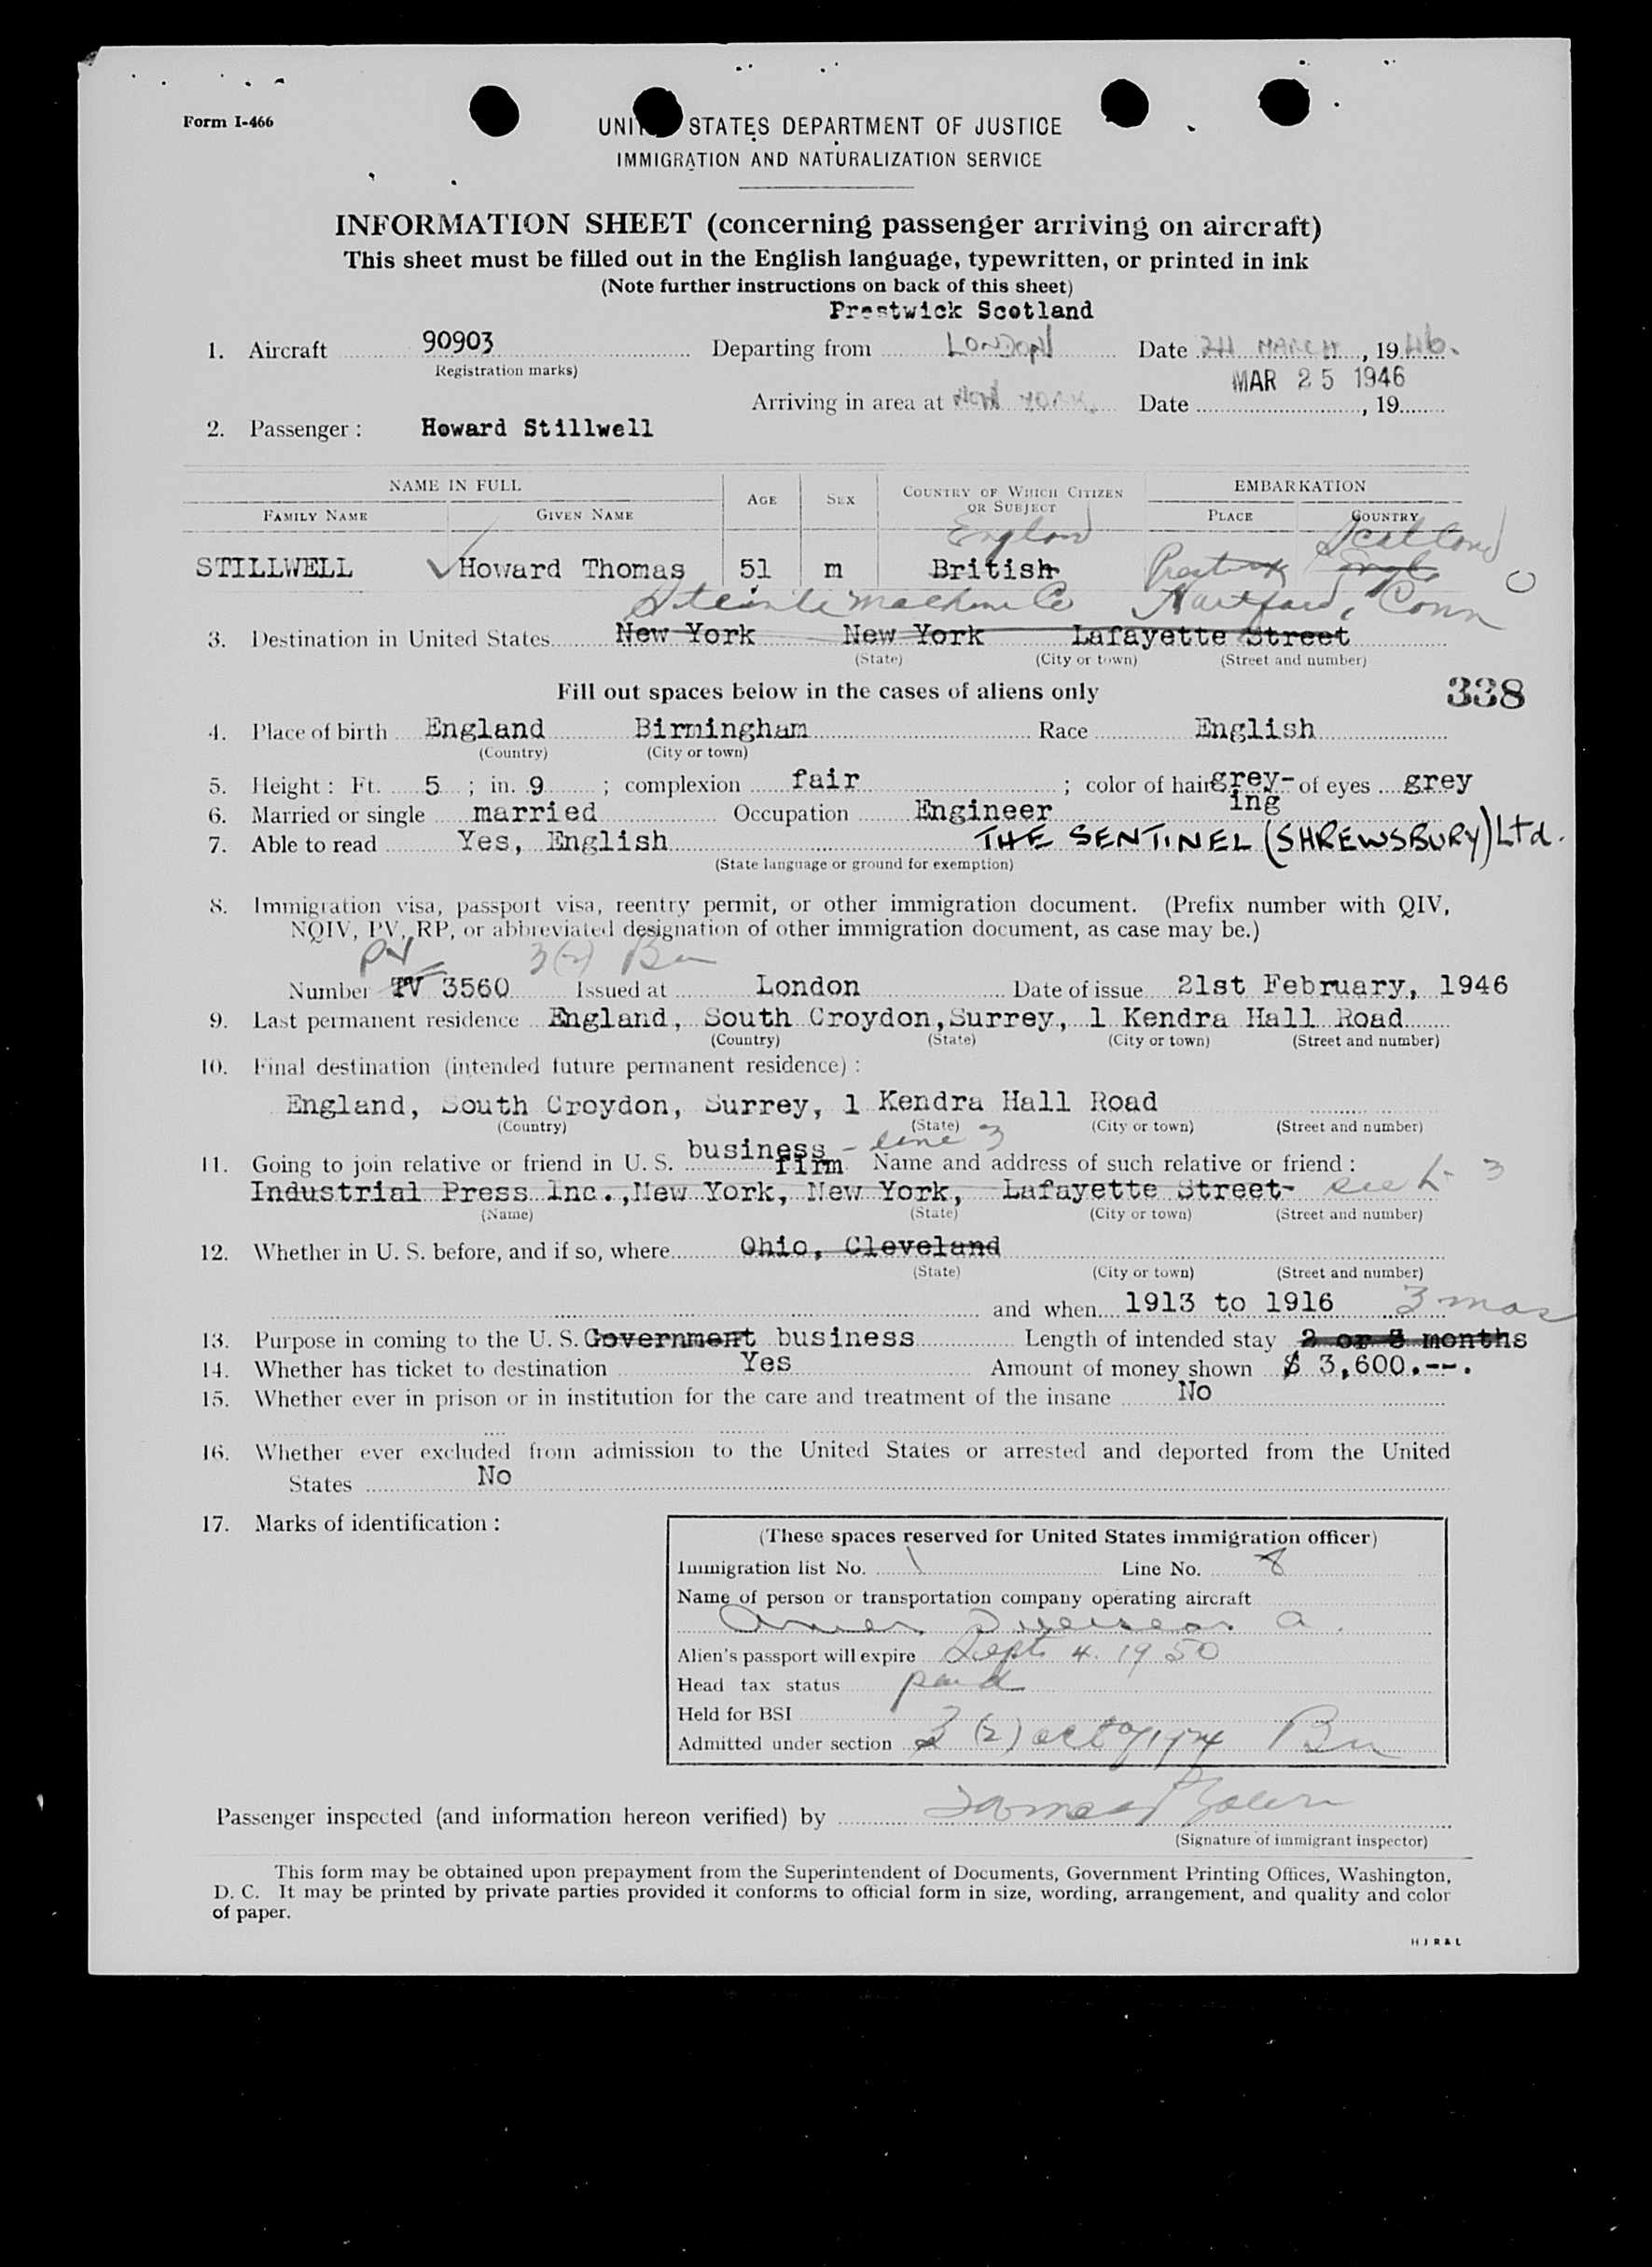 Form I-466
UNITED STATES DEPARTMENT OF JUSTICE
IMMIGRATION AND NATURALIZATION SERVICE
INFORMATION SHEET (concerning passenger arriving on aircraft)
This sheet must be filled out in the English language, typewritten, or printed in ink
(Note further instructions on back of this sheet)
Prestwick Scotland
1. Aircraft 90903 Departing from LONDON Date 24 MARCH, 1946.
Registration marks)
MAR 25 1946
Arriving in area at NEW YORK. Date , 19
2. Passenger : Howard Stillwell
NAME IN FULL AGE SEX COUNTRY OF WHICH CITIZEN OR SUBJECT EMBARKATION
FAMILY NAME GIVEN NAME PLACE COUNTRY
England Scotland
STILLWELL Howard Thomas 51 m British Prestwick Engl
Machine Co Hartford, Conn
3. Destination in United States New York New York Lafayette Street
(State) (City or town) (Street and number)
Fill out spaces below in the cases of aliens only
338
4. Place of birth England Birmingham Race English
(Country) (City or town)
5. Height : Ft. 5 ; in. 9 ; complexion fair ; color of hair grey- of eyes grey
ing
6. Married or single married Occupation Engineer
7. Able to read Yes, English THE SENTINEL (SHREWSBURY) Ltd.
(State language or ground for exemption)
8. Immigration visa, passport visa, reentry permit, or other immigration document. (Prefix number with QIV,
NQIV, PV, RP, or abbreviated designation of other immigration document, as case may be.)
PV 3(2) Bu
Number TV 3560 Issued at London Date of issue 21st February, 1946
9. Last permanent residence England, South Croydon, Surrey, 1 Kendra Hall Road
(Country) (State) (City or town) (Street and number)
10. Final destination (intended future permanent residence) :
England, South Croydon, Surrey, 1 Kendra Hall Road
(Country) (State) (City or town) (Street and number)
business - line 3
11. Going to join relative or friend in U. S. firm Name and address of such relative or friend :
Industrial Press Inc., New York, New York, Lafayette Street- see L 3
(Name) (State) (City or town) (Street and number)
12. Whether in U. S. before, and if so, where Ohio, Cleveland
(State) (City or town) (Street and number)
and when 1913 to 1916 3 mos
13. Purpose in coming to the U. S. Government business Length of intended stay 2 or 3 months
14. Whether has ticket to destination Yes Amount of money shown $ 3,600.--.
15. Whether ever in prison or in institution for the care and treatment of the insane No
16. Whether ever excluded from admission to the United States or arrested and deported from the United
States No
17. Marks of identification :
(These spaces reserved for United States immigration officer)
Immigration list No. 1 Line No. 8
Name of person or transportation company operating aircraft
Amer Overseas A.
Alien's passport will expire Sept 4. 1950
Head tax status paid
Held for BSI
Admitted under section 3 (2) act of 1924 Bu
Passenger inspected (and information hereon verified) by
(Signature of immigrant inspector)
This form may be obtained upon prepayment from the Superintendent of Documents, Government Printing Offices, Washington,
D. C. It may be printed by private parties provided it conforms to official form in size, wording, arrangement, and quality and color
of paper.
H J R & L